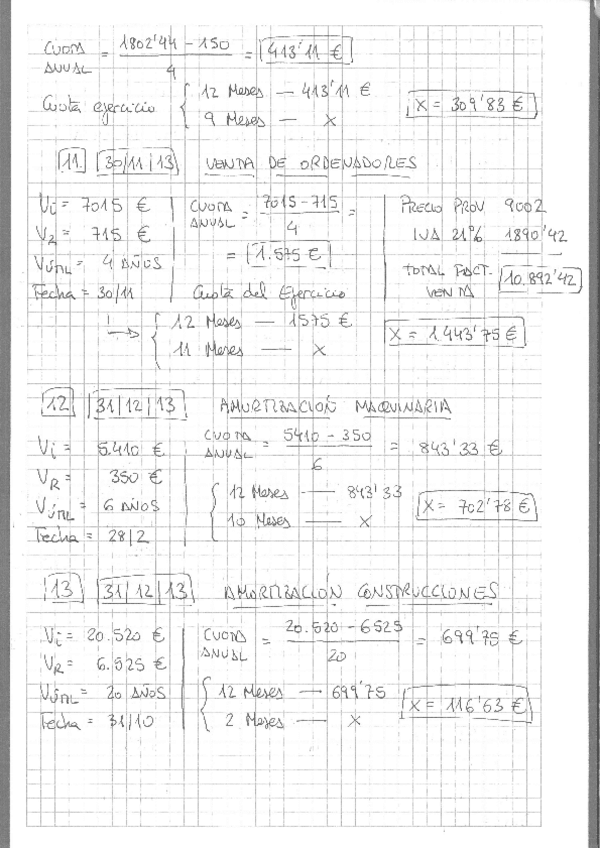 CUOTA ANUAL = 1802'44 - 150 / 4 = 413'11 €
Cuota ejercicio { 12 Meses — 413'11 €
9 Meses — X
X = 309'83 €
11. 30/11/13 VENTA DE ORDENADORES
Vi = 7015 €
VR = 715 €
VÚTIL = 4 AÑOS
Fecha = 30/11
CUOTA ANUAL = 7015 - 715 / 4 =
= 1.575 €
Cuota del Ejercicio
PRECIO PROV 9002
IVA 21% 1890'42
TOTAL FACT. VENTA 10.892'42
{ 12 Meses — 1575 €
11 Meses — X
X = 1.443'75 €
12 31/12/13 AMORTIZACIÓN MAQUINARIA
Vi = 5.410 €
VR = 350 €
VÚTIL = 6 AÑOS
Fecha = 28/2
CUOTA ANUAL = 5410 - 350 / 6 = 843'33 €
{ 12 Meses — 843'33
10 Meses — X
X = 702'78 €
13 31/12/13 AMORTIZACIÓN CONSTRUCCIONES
Vi = 20.520 €
VR = 6.525 €
VÚTIL = 20 AÑOS
Fecha = 31/10
CUOTA ANUAL = 20.520 - 6525 / 20 = 699'75 €
{ 12 Meses — 699'75
2 Meses — X
X = 116'63 €